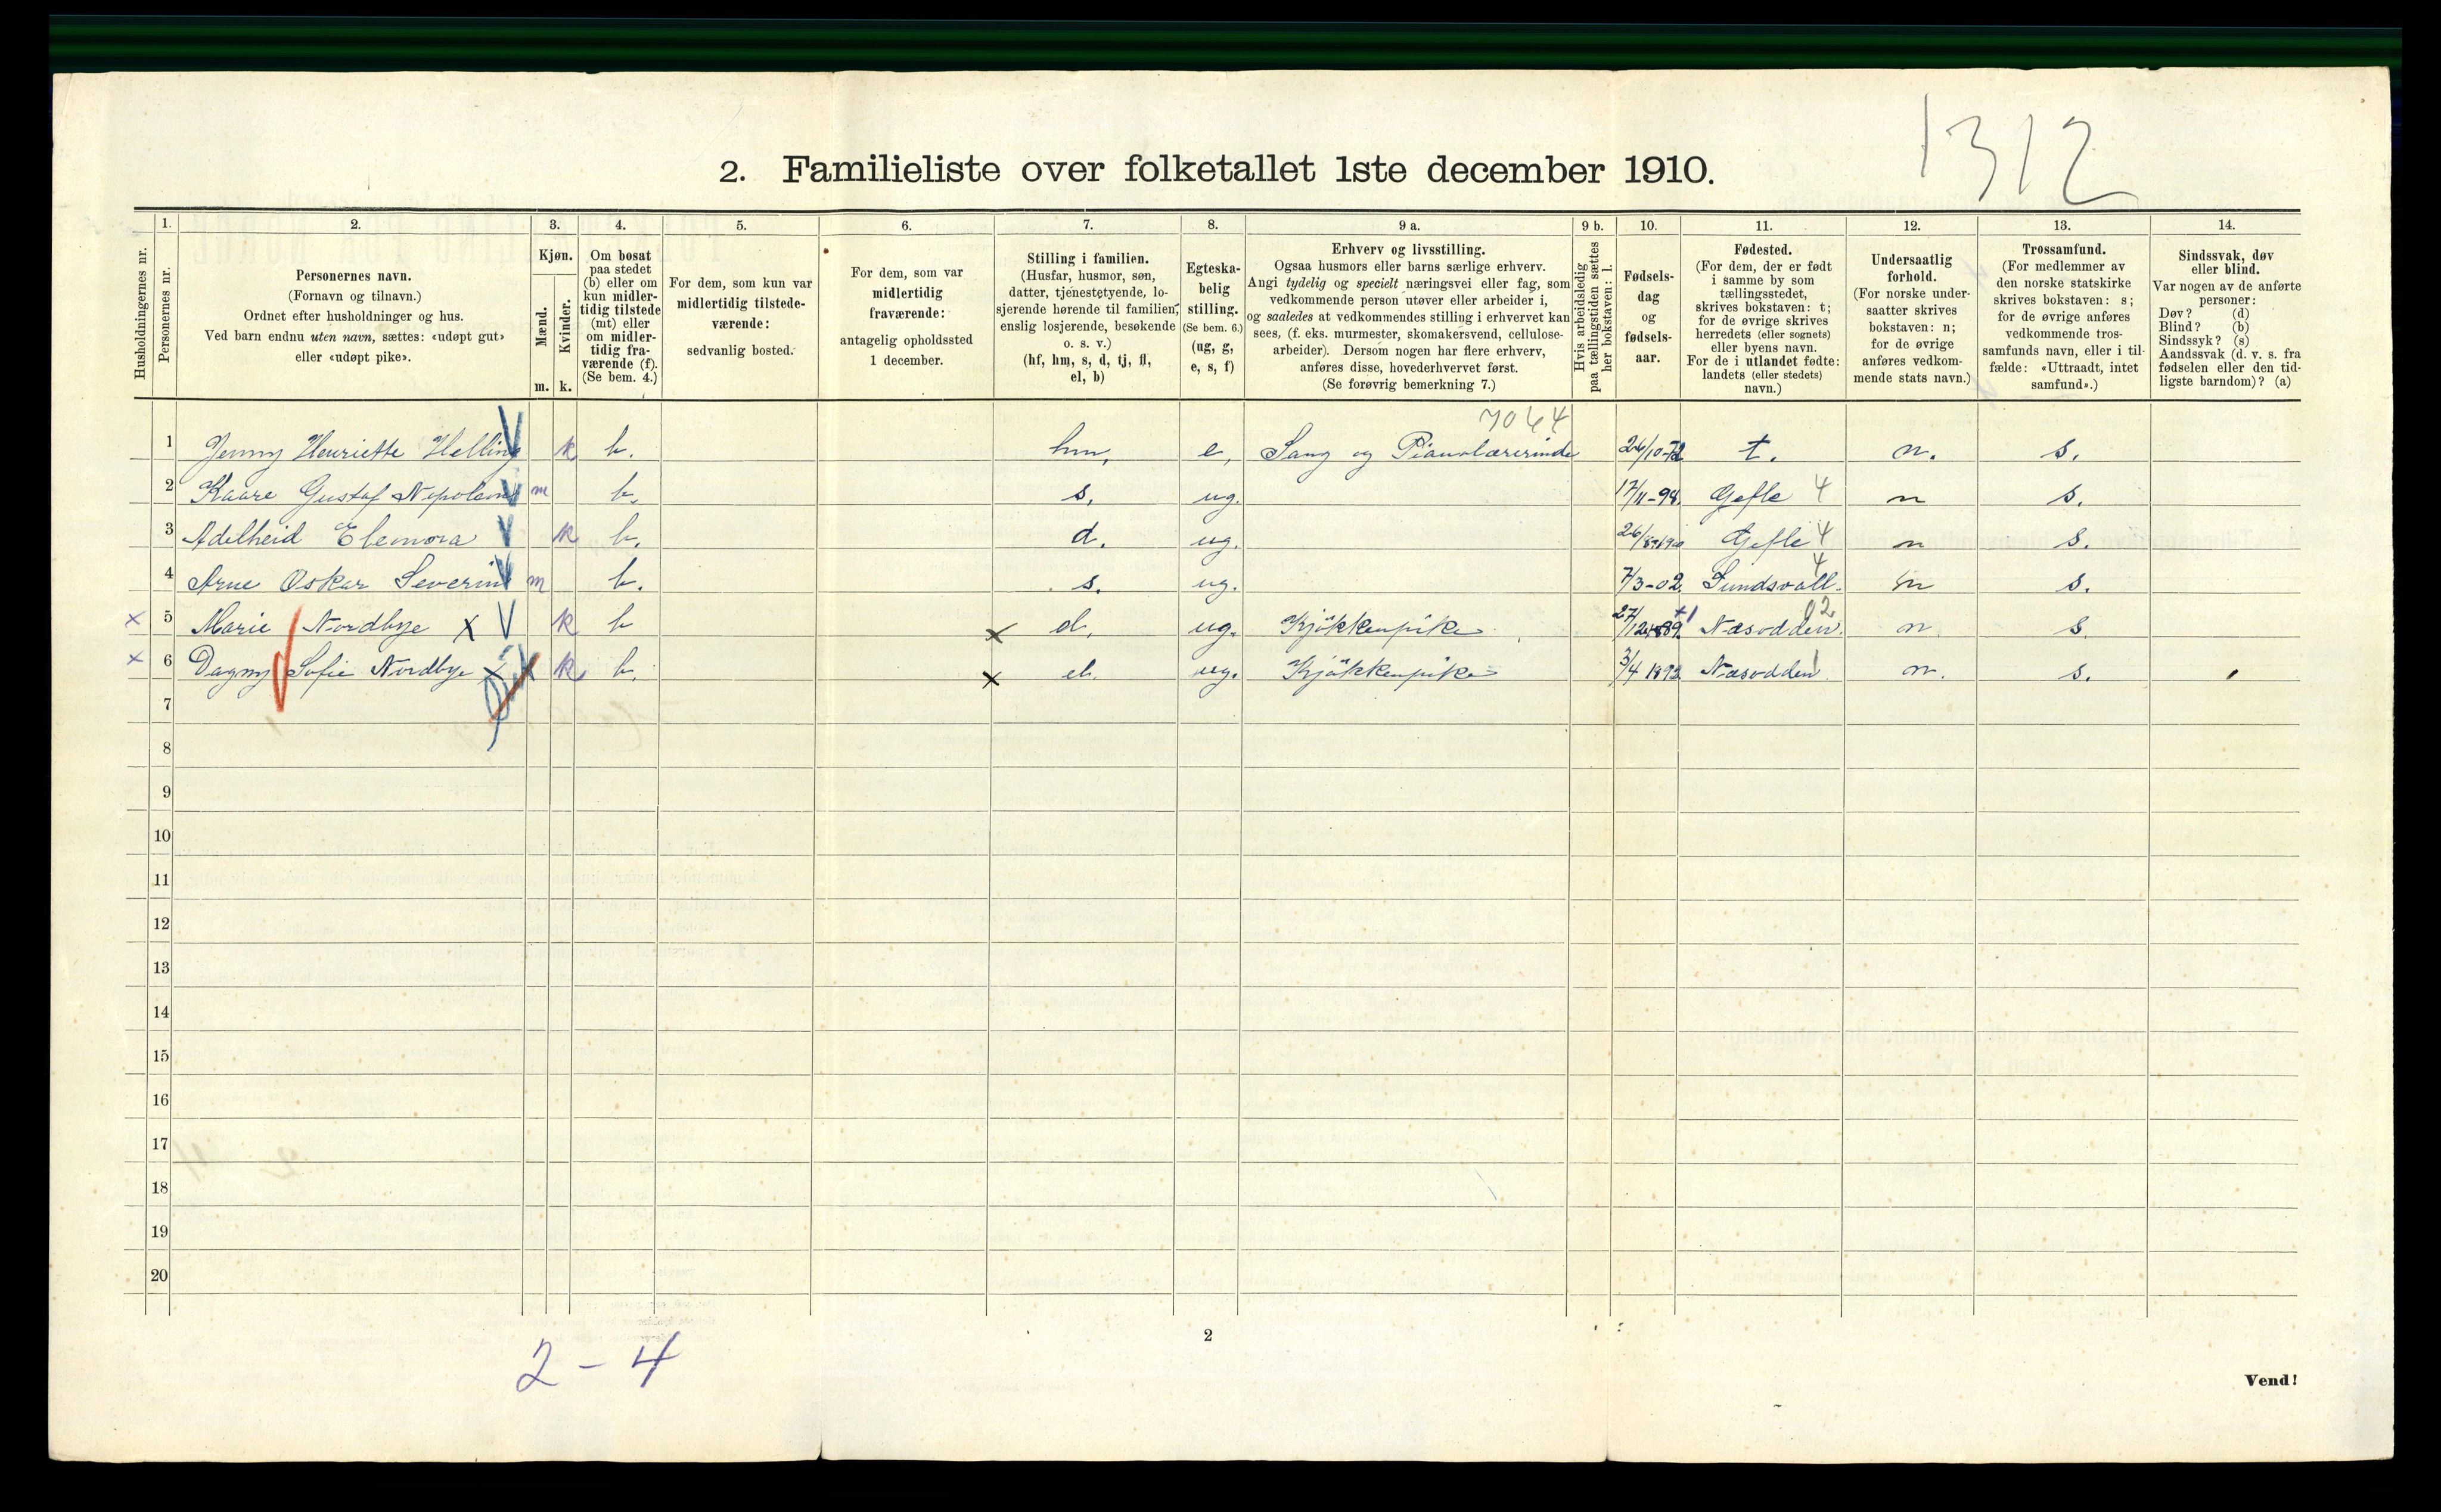 1312
2. Familieliste over folketallet 1ste december 1910.
1. 2. 3. 4. 5. 6. 7. 8. 9 a. 9 b. 10. 11. 12. 13. 14.
Husholdningernes nr.
Personernes nr.
Personernes navn.
(Fornavn og tilnavn.)
Ordnet efter husholdninger og hus.
Ved barn endnu uten navn, sættes: «udøpt gut»
eller «udøpt pike».
Kjøn.
Mænd.
Kvinder.
m. k.
Om bosat
paa stedet
(b) eller om
kun midler-
tidig tilstede
(mt) eller
om midler-
tidig fra-
værende (f).
(Se bem. 4.)
For dem, som kun var
midlertidig tilstede-
værende:
sedvanlig bosted.
For dem, som var
midlertidig
fraværende:
antagelig opholdssted
1 december.
Stilling i familien.
(Husfar, husmor, søn,
datter, tjenestetyende, lo-
sjerende hørende til familien,
enslig losjerende, besøkende
o. s. v.)
(hf, hm, s, d, tj, fl,
el, b)
Egteska-
belig
stilling.
(Se bem. 6.)
(ug, g,
e, s, f)
Erhverv og livsstilling.
Ogsaa husmors eller barns særlige erhverv.
Angi tydelig og specielt næringsvei eller fag, som
vedkommende person utøver eller arbeider i,
og saaledes at vedkommendes stilling i erhvervet kan
sees, (f. eks. murmester, skomakersvend, cellulose-
arbeider). Dersom nogen har flere erhverv,
anføres disse, hovederhvervet først.
(Se forøvrig bemerkning 7.)
Hvis arbeidsledig
paa tællingstiden sættes
her bokstaven: l.
Fødsels-
dag
og
fødsels-
aar.
Fødested.
(For dem, der er født
i samme by som
tællingsstedet,
skrives bokstaven: t;
for de øvrige skrives
herredets (eller sognets)
eller byens navn.
For de i utlandet fødte:
landets (eller stedets)
navn.)
Undersaatlig
forhold.
(For norske under-
saatter skrives
bokstaven: n;
for de øvrige
anføres vedkom-
mende stats navn.)
Trossamfund.
(For medlemmer av
den norske statskirke
skrives bokstaven: s;
for de øvrige anføres
vedkommende tros-
samfunds navn, eller i til-
fælde: «Uttraadt, intet
samfund».)
Sindssvak, døv
eller blind.
Var nogen av de anførte
personer:
Døv? (d)
Blind? (b)
Sindssyk? (s)
Aandssvak (d. v. s. fra
fødselen eller den tid-
ligste barndom)? (a)
7064
1 Jenny Henriette Helling k b. hm, e, Sang og Pianolærerinde 26/10-72 t. n. s.
2 Kaare Gustaf Napoleon m b. s. ug. 17/11-98. Gefle 4 n s.
3 Adelheid Eleonora k b. d. ug. Gefle 4 n s.
4 Arne Oskar Severin m b. s. ug. 7/3-02. Sundsvall. 4 n s.
x 5 Marie Nordbye X k b x el. ug. Kjøkkenpike 27/12 1889. Næsodden. n. s.
x 6 Dagny Sofie Nordbye x k b. x el. ug. Kjøkkenpike 3/4 1892. Næsodden n. s.
7
8
9
10
11
12
13
14
15
16
17
18
19
20
2
2 - 4
Vend!